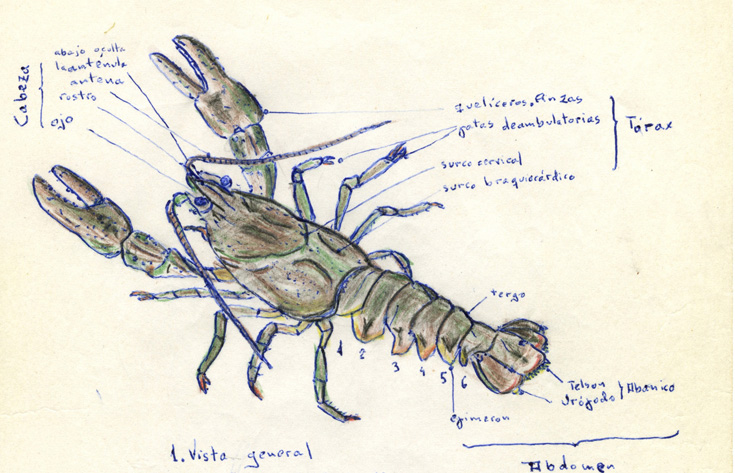 Cabeza
abajo oculta
la anténula
antena
rostro
ojo
quelíceros, Pinzas
patas deambulatorias
Tórax
surco cervical
surco braquiocárdico
tergo
1 2 3 4 5 6
Telson
Urópodo
Abanico
epimeron
Abdomen
1. Vista general